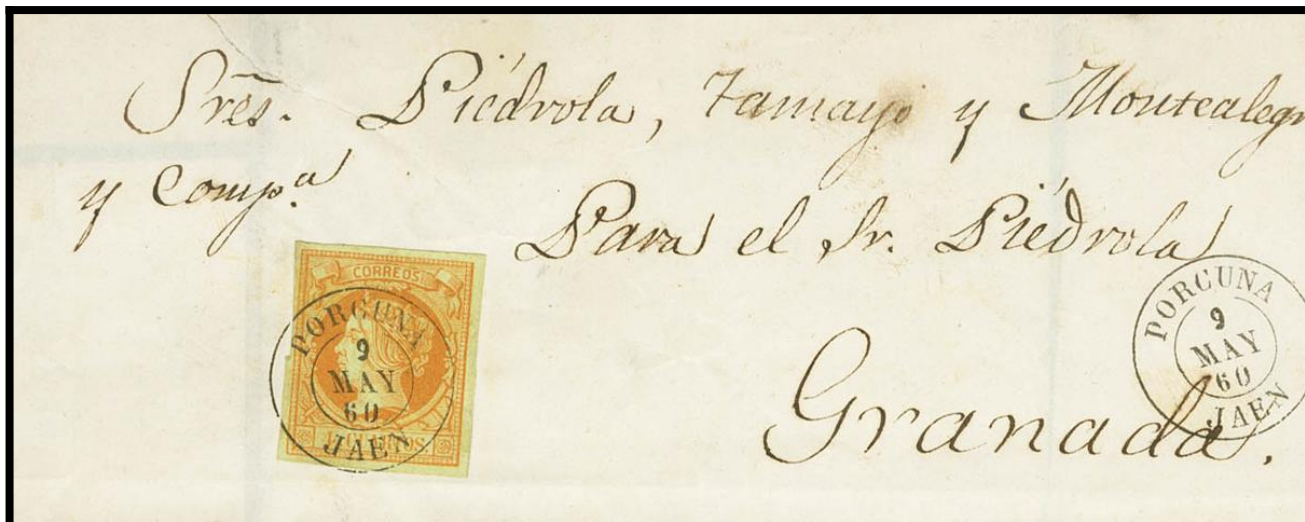 Sres. Piédrola, Tamayo y Montealegr
y Comp.a
Para el Sr. Piédrola
CORREOS
PORCUNA
9
MAY
60
JAEN
PORCUNA
9
MAY
60
JAEN
Granada.